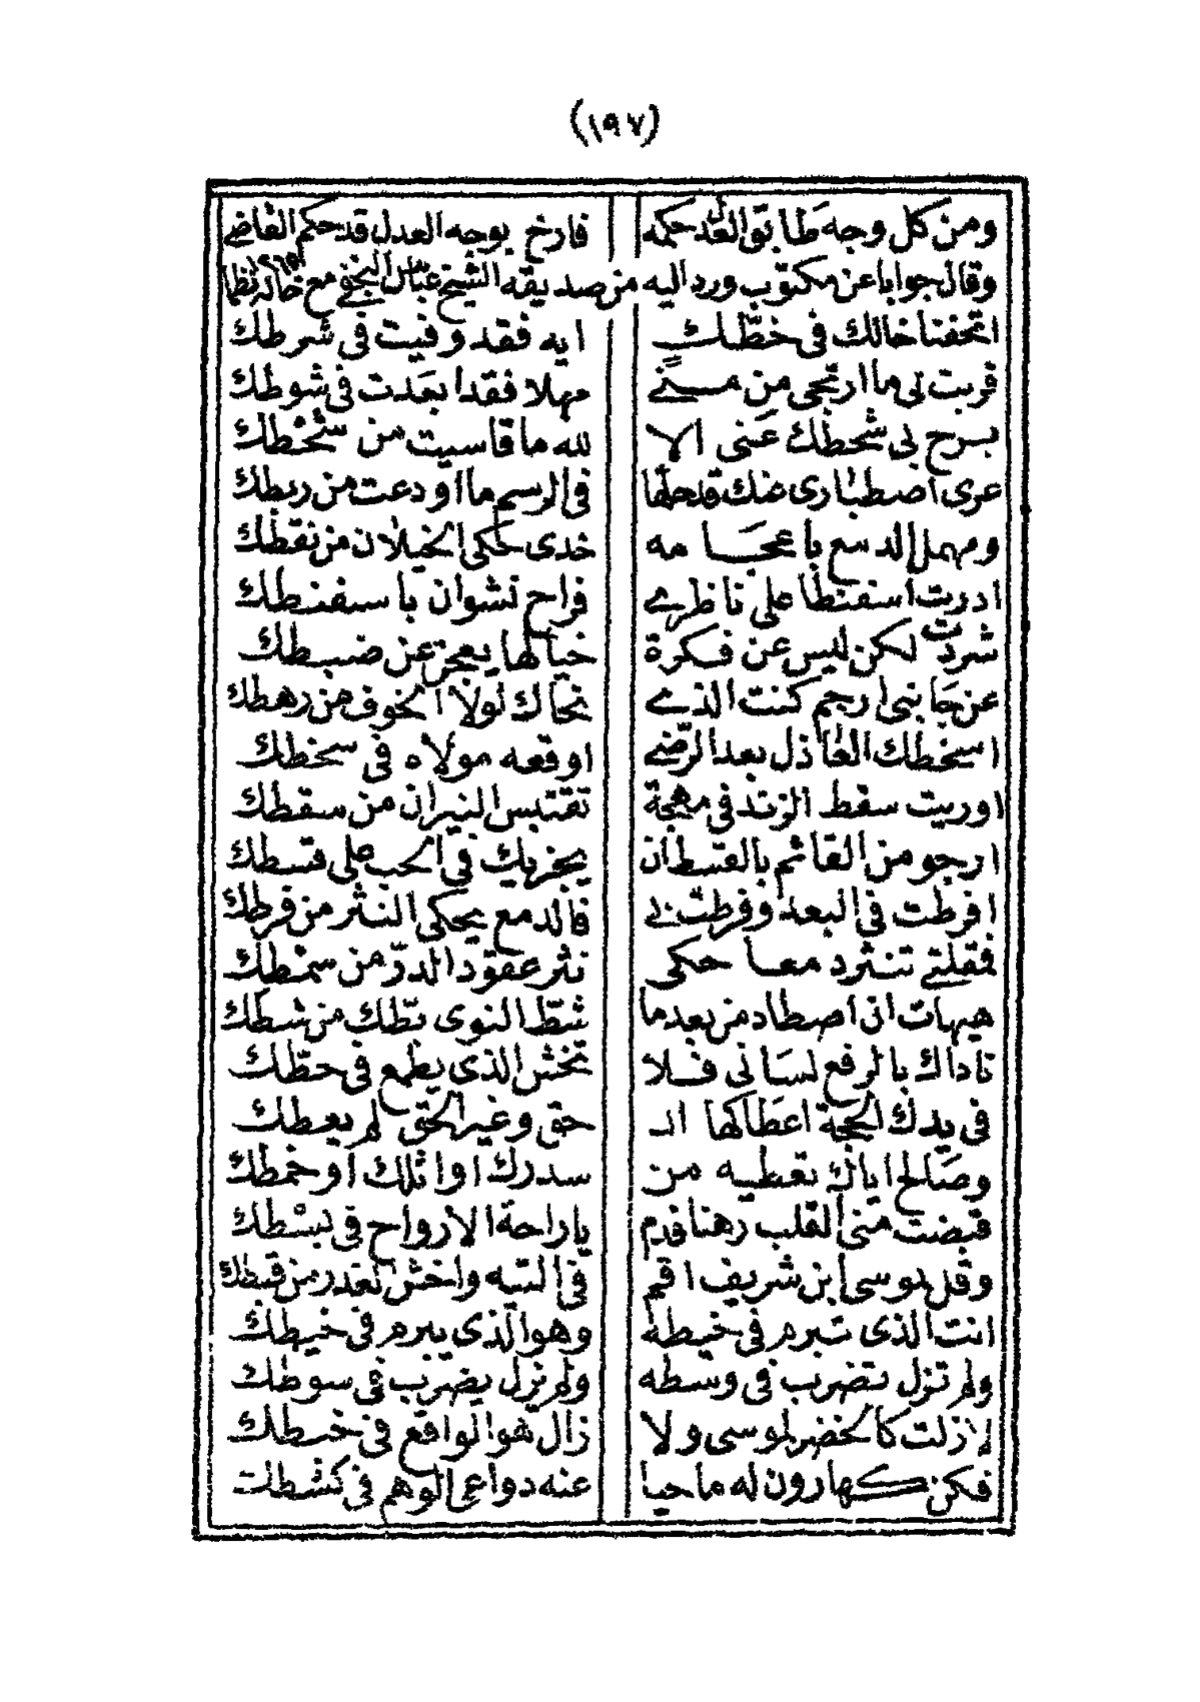 (١٩٧)
ومن كل وجه طابق العدل حكمه فارخ بوجه العدل قد حكم القاضي
وقال جوابا عن مكتوب ورد اليه من صديقه الشيخ عباس النجفي مع خاله نظما
اتحفنا خالك في خطّك ايه فقد وفيت في شرطك
قربت لي ما ارتجى من مسنّي مهلا فقد ابعدت في شوطك
برح بي شحطك عني الا لله ما قاسيت من شحطك
عرى اصطباري عنك قد حلها في الرسم ما اودعت من ربطك
ومهمل الدمع باعجامه خدى حكى الخيلان من نقطك
ادرت اسفنطا على ناظري فراح نشوان باسفنطك
شردت لكن ليس عن فكرة خيالها يعجز عن ضبطك
عن جانبي ارجم كنت الذي نحاك لولا الخوف من رهطك
اسخطك العاذل بعد الرضي اوقعه مولاه في سخطك
اوريت سقط الزند في مهجة تقتبس النيران من سقطك
ارجو من القائم بالقسط ان يجزيك في الحب على قسطك
افرطت في البعد وفرطت بي فالدمع يحكى النثر من فرطك
فمقلتي تنثر دمعا حكى نثر عقود الدرّ من سمطك
هيهات ان اصطاد من بعد ما شطّ النوى بّطك من شطك
ناداك بالرفع لساني فلا تخش الذي يطمع في حطّك
في يدك الحجة اعطاكها الـ حق وغير الحق لم يعطك
وصالح اياك تعطيه من سدرك او اثلك او خمطك
قبضت منى القلب رهنا فدم ياراحة الارواح في بسطك
وقل لموسى ابن شريف اقم في التيه واخش الغدر من قبطك
انت الذي تبرم في خيطه وهو الذي يبرم في خيطك
ولم تزل تضرب في وسطه ولم يزل يضرب في سوطك
لا زلت كالخضر لموسى ولا زال هو الواقع في خبطك
فكن كهارون له ماحيا عنه دواعى الوهم في كشطك